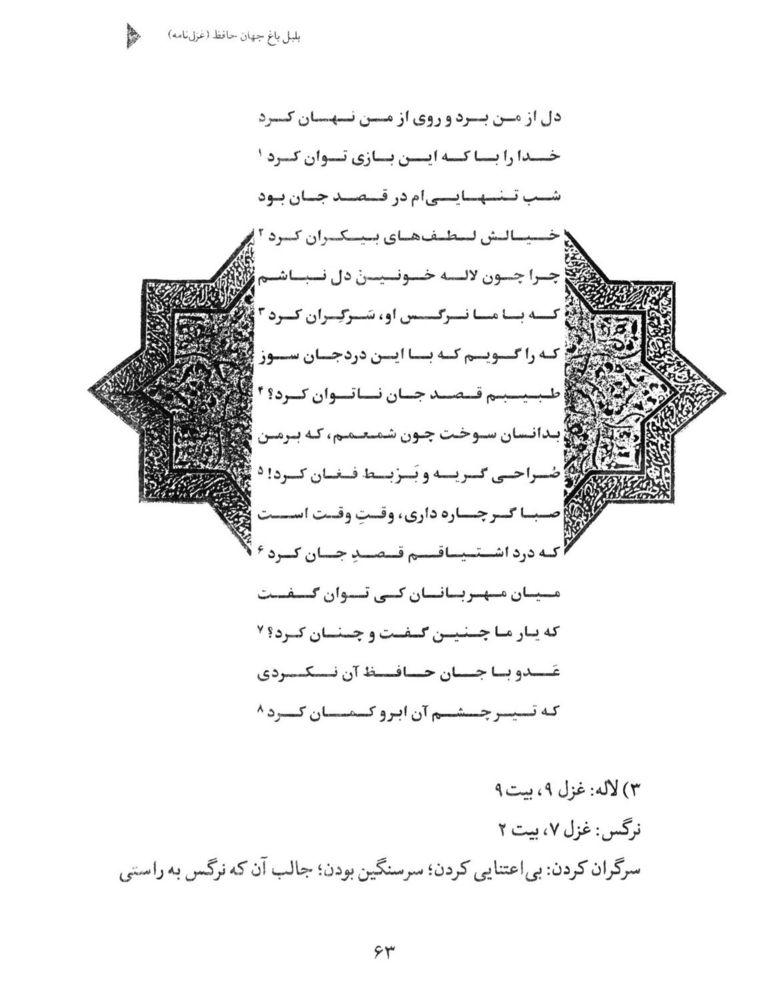 بلبل باغ جهان حافظ (غزل‌نامه)
دل از من برد و روی از من نهان کرد
خدا را با که این بازی توان کرد ۱
شب تنهایی‌ام در قصد جان بود
خیالش لطف‌های بیکران کرد ۲
چرا چون لاله خونین دل نباشم
که با ما نرگس او، سَرگِران کرد ۳
که را گویم که با این درد جان سوز
طبیبم قصد جان ناتوان کرد؟ ۴
بدانسان سوخت چون شمعم، که بر من
صُراحی گریه و بَربَط فغان کرد! ۵
صبا گر چاره داری، وقتِ وقت است
که درد اشتیاقم قصدِ جان کرد ۶
میان مهربانان کی توان گفت
که یار ما چنین گفت و چنان کرد؟ ۷
عَدو با جان حافظ آن نکردی
که تیر چشم آن ابرو کمان کرد ۸
۳) لاله: غزل ۹، بیت ۹
نرگس: غزل ۷، بیت ۲
سرگران کردن: بی‌اعتنایی کردن؛ سرسنگین بودن؛ جالب آن که نرگس به راستی
۶۳